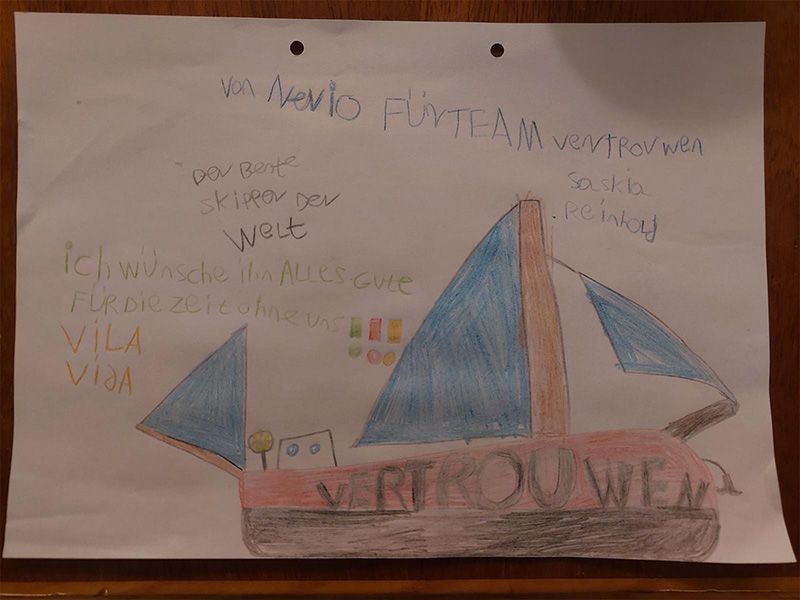 von Nevio FÜR TEAM vertrouwen
Saskia
Reinhold
Der Beste
Skipper Der
Welt
ich wünsche ihn ALLES GUte
FÜR Die Zeit ohne uns!!!
ViLA
ViDA
VERTROUWEN